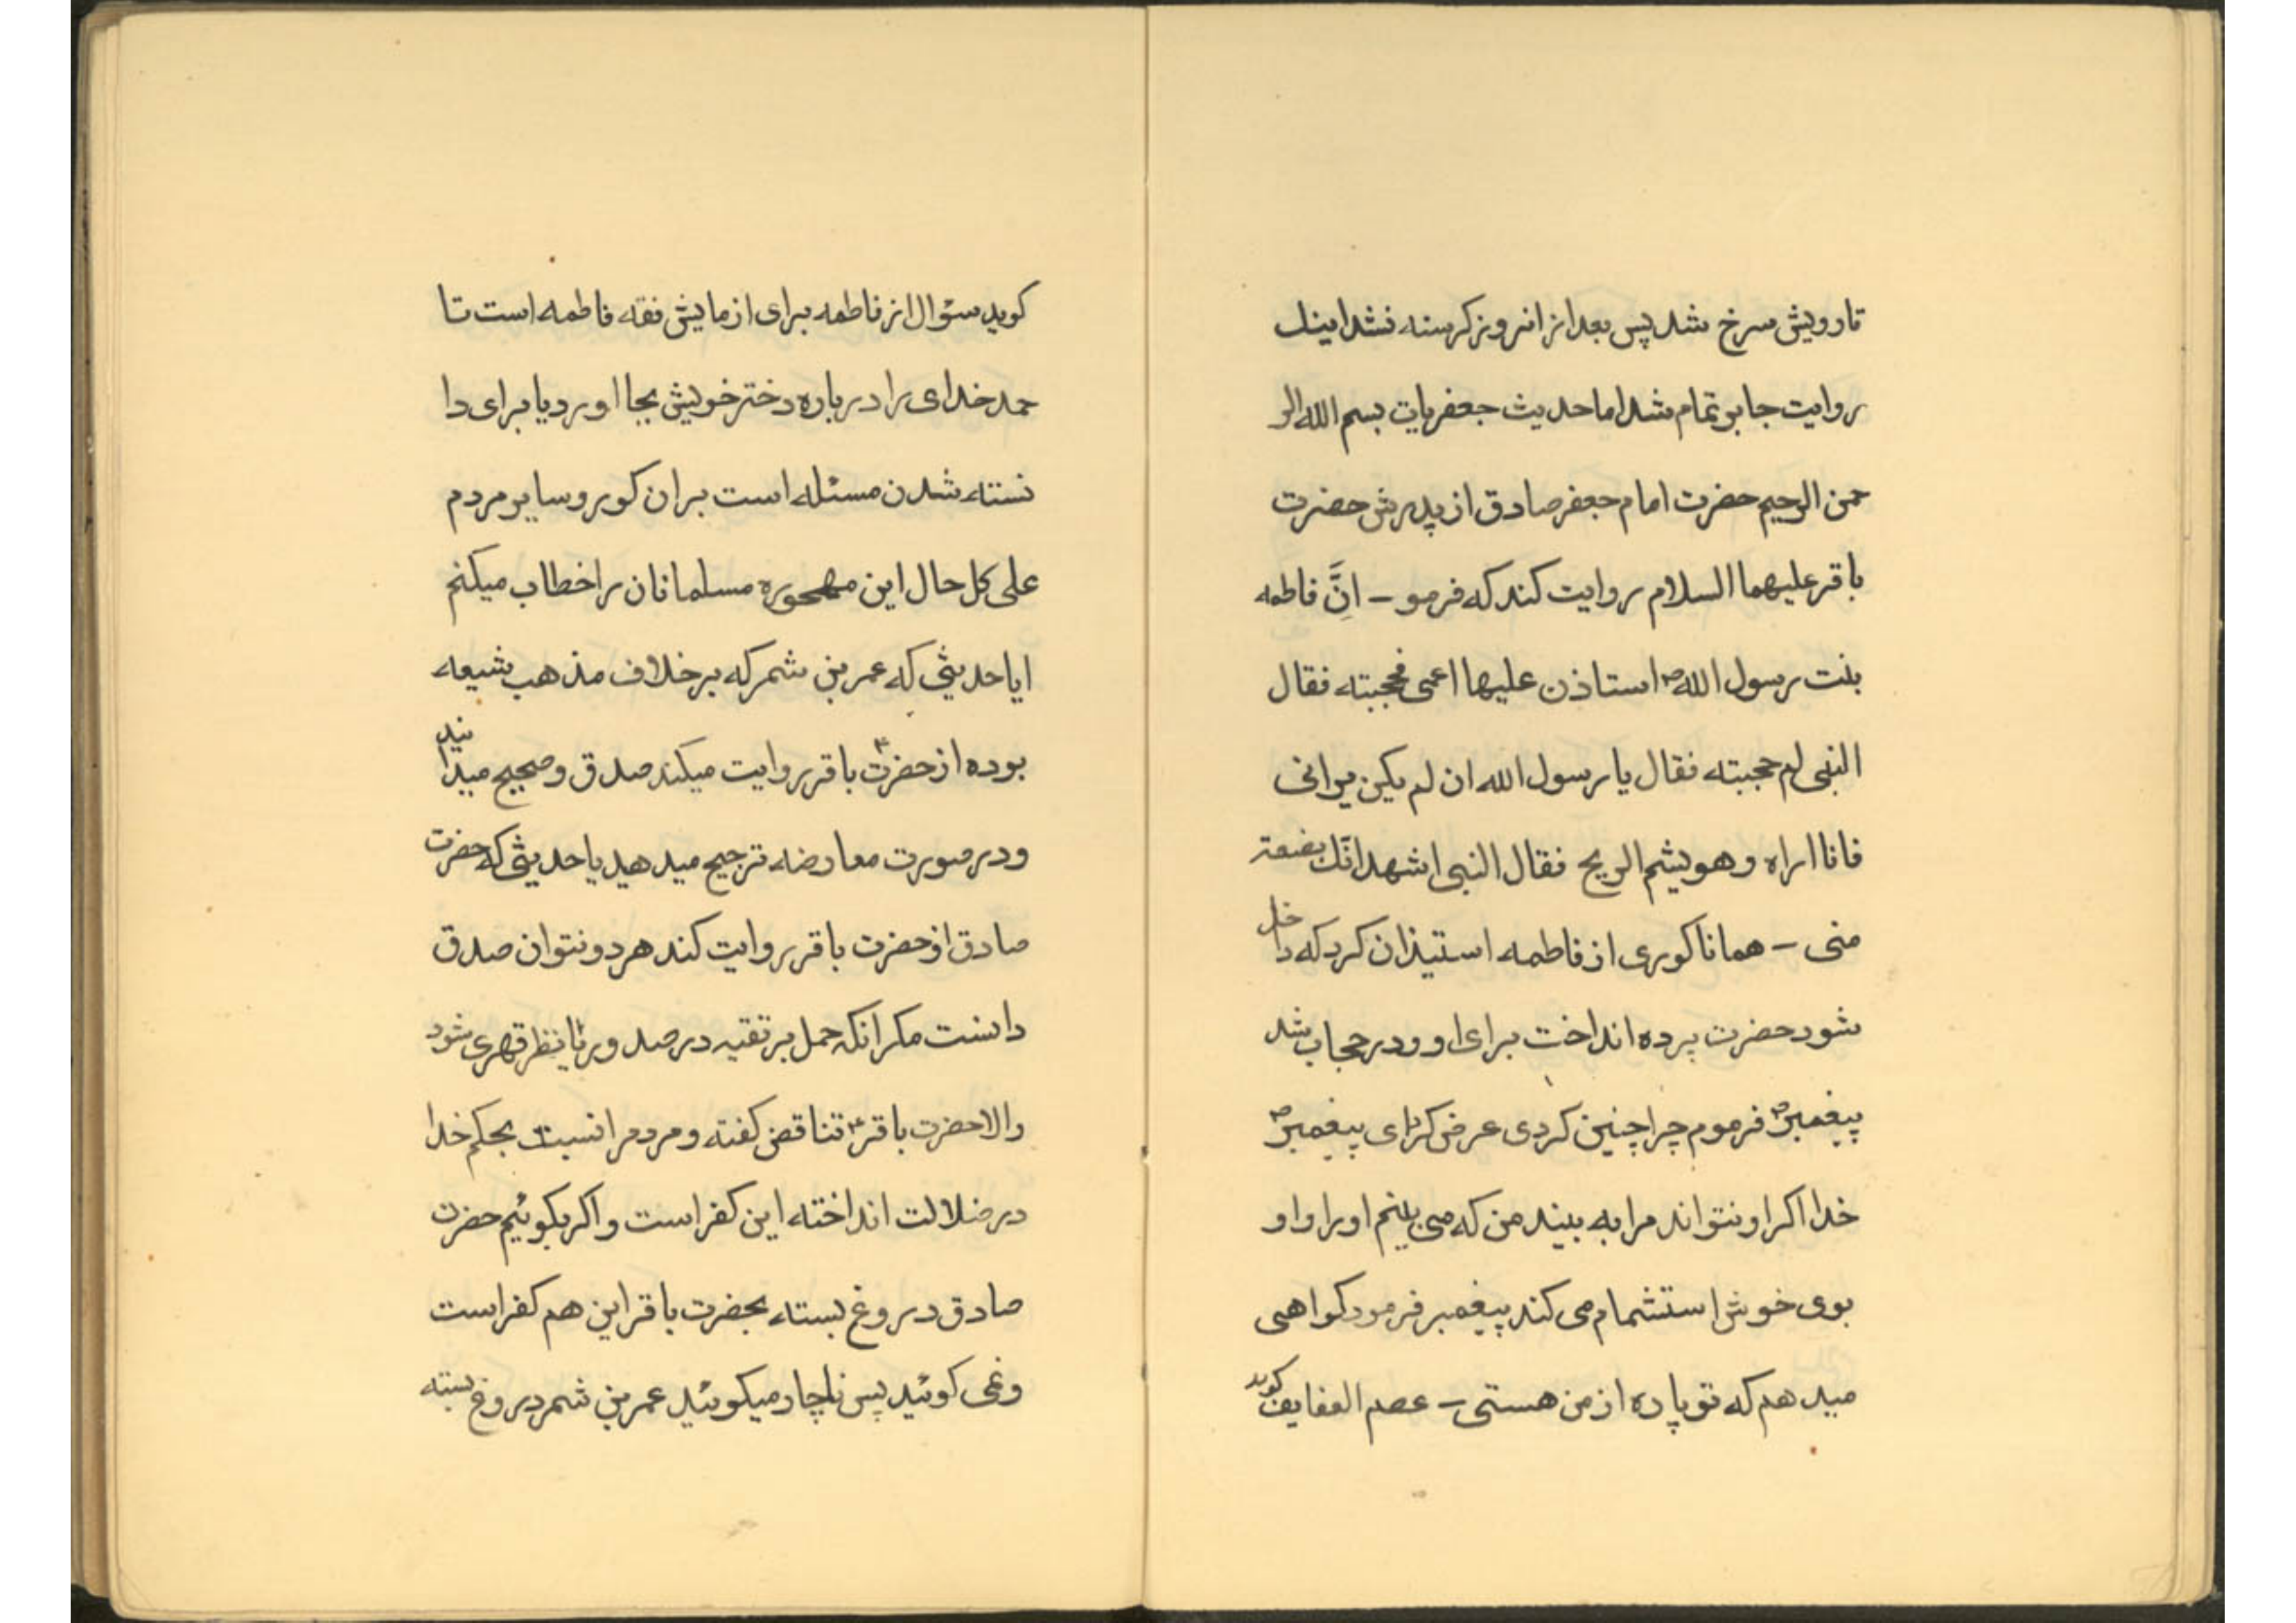 تارویش سرخ شد پس بعد از انروز کرسنه نشد اینک
روایت جابر تمام شد اما حدیث جعفریات بسم الله الر
حمن الرحیم حضرت امام جعفر صادق از پدرش حضرت
باقر علیهما السلام روایت کند که فرمو – انَّ فاطمه
بنت رسول الله ص استاذن علیها اعمی فحجبته فقال
النبی لم حجبته فقال یا رسول الله ان لم یکن یرانی
فانا اراه و هو یشم الریح فقال النبی اشهد انّک بضعته
منی – همانا کوری از فاطمه استیذان کرد که داخل
شود حضرت پرده انداخت برای او و در حجاب شد
پیغمبر ص فرموم چرا چنین کردی عرض کرد ای پیغمبر ص
خدا اکر او نتواند مرا به بیند من که می بینم او را و او
بوی خوش استشمام می کند پیغمبر فرمود کواهی
میدهم که تو پاره از من هستی – عصم العفایف کوید
کوید سئوال از فاطمه برای ازمایش فقه فاطمه است تا
حمد خدای را درباره دختر خویش بجا اورد یا برای دا
نسته شدن مسئله است بران کور و سایر مردم
علی کل حال این مهجوره مسلمانان را خطاب میکنم
ایا حدیثی که عمر بن شمر که بر خلاف مذهب شیعه
بوده از حضرت ع باقر روایت میکند صدق و صحیح میدانید
و در صورت معارضه ترجیح میدهید یا حدیثی که حضرت
صادق از حضرت باقر روایت کند هر دو نتوان صدق
دانست مکر انکه حمل بر تقیه در صدور یا نظر قهری شود
والا حضرت باقر ع تناقض کفته و مردم را نسبت بحکم خدا
در ضلالت انداخته این کفر است و اکر بکوئیم حضرت
صادق دروغ بسته بحضرت باقر این هم کفر است
ونمی کوئید پس ناچار میکوئید عمر بن شمر دروغ بسته